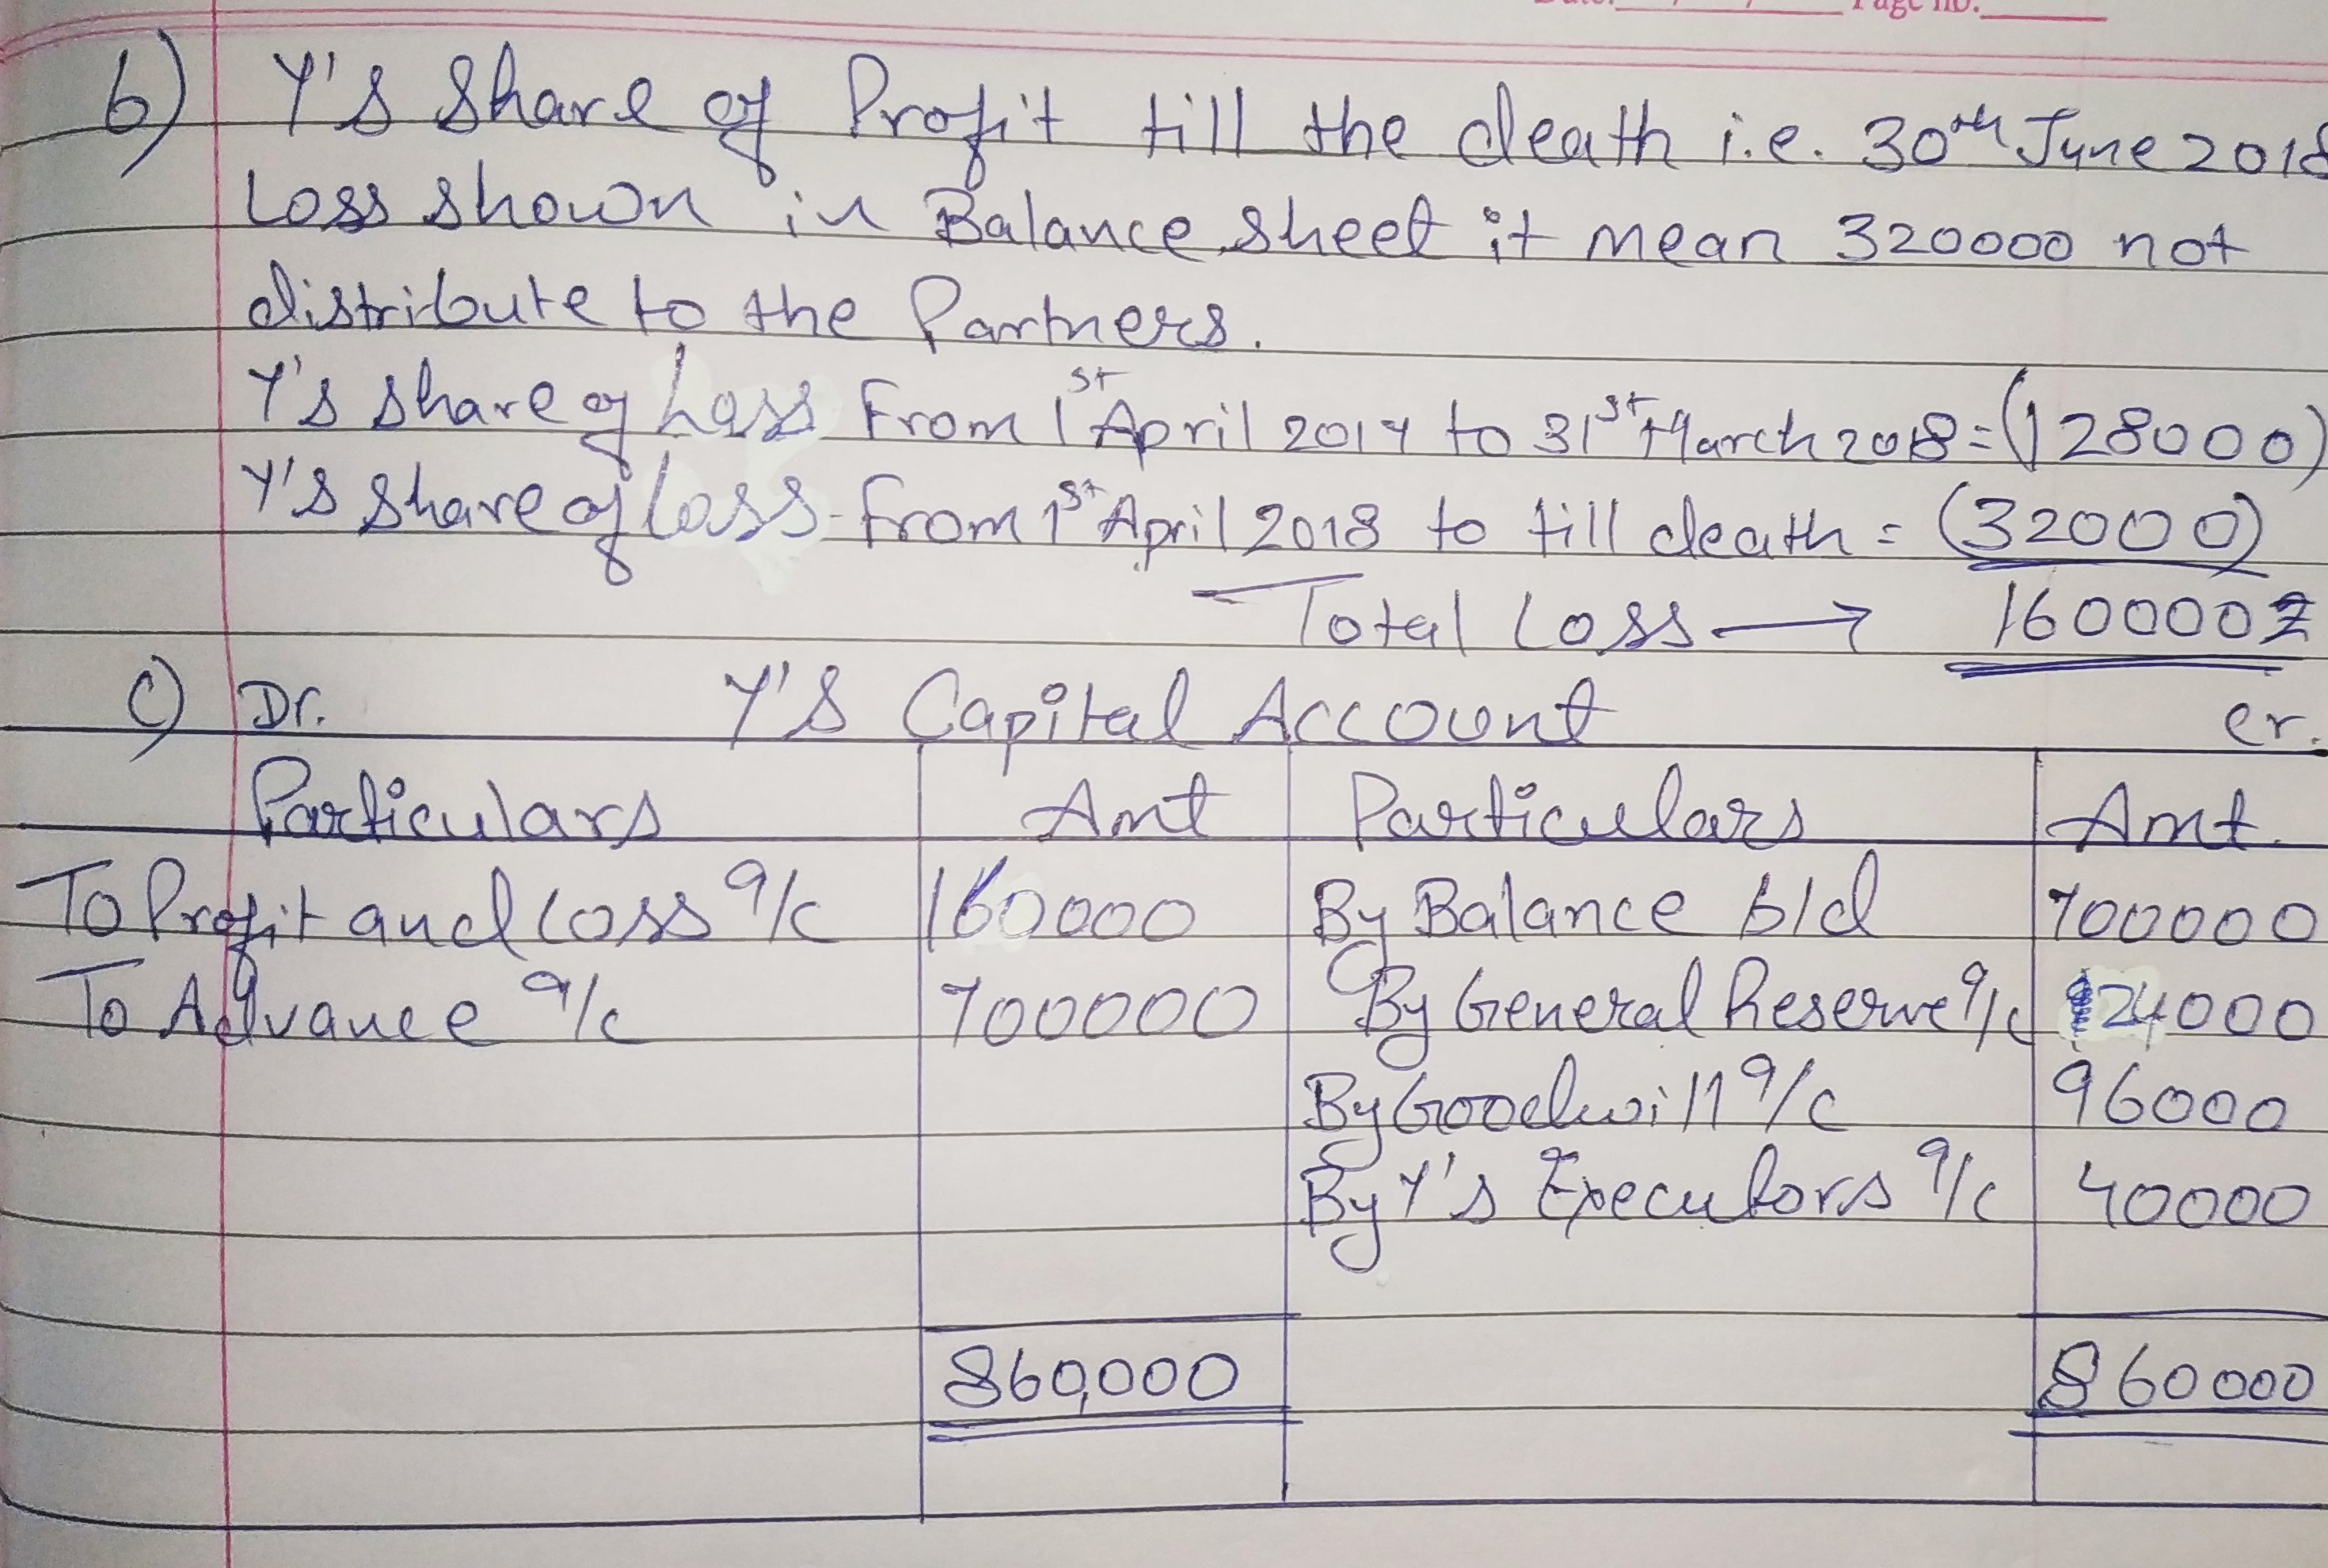 Date. Page no.
b) Y's Share of Profit till the death i.e. 30th June 2018
Loss shown in Balance sheet it mean 320000 not
distribute to the Partners.
Y's share of Loss From 1st April 2017 to 31st March 2018 = (128000)
Y's share of loss From 1st April 2018 to till death = (32000)
Total Loss → 160000
c) Dr. Y's Capital Account Cr.
Particulars Amt Particulars Amt.
To Profit and Loss a/c 160000 By Balance b/d 700000
To Advance a/c 700000 By General Reserve a/c 24000
By Goodwill a/c 96000
By Y's Executors a/c 40000
860,000 860000